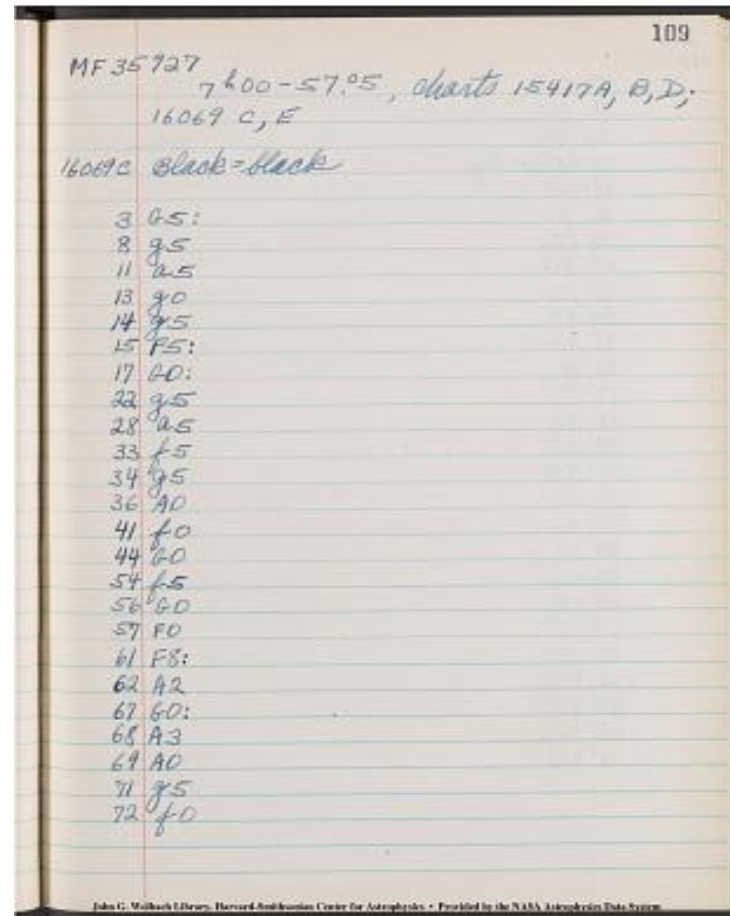 109
MF 35927
7h00-57.°5, charts 15417A, B, D;
16069 C, E
16069C Black = black
3 G5:
8 g5
11 a5
13 g0
14 g5
15 F5:
17 G0:
22 g5
28 a5
33 f5
34 g5
36 A0
41 f0
44 G0
54 f5
56 G0
57 F0
61 F8:
62 A2
67 G0:
68 A3
69 A0
71 g5
72 f0
John G. Wolbach Library, Harvard-Smithsonian Center for Astrophysics • Provided by the NASA Astrophysics Data System